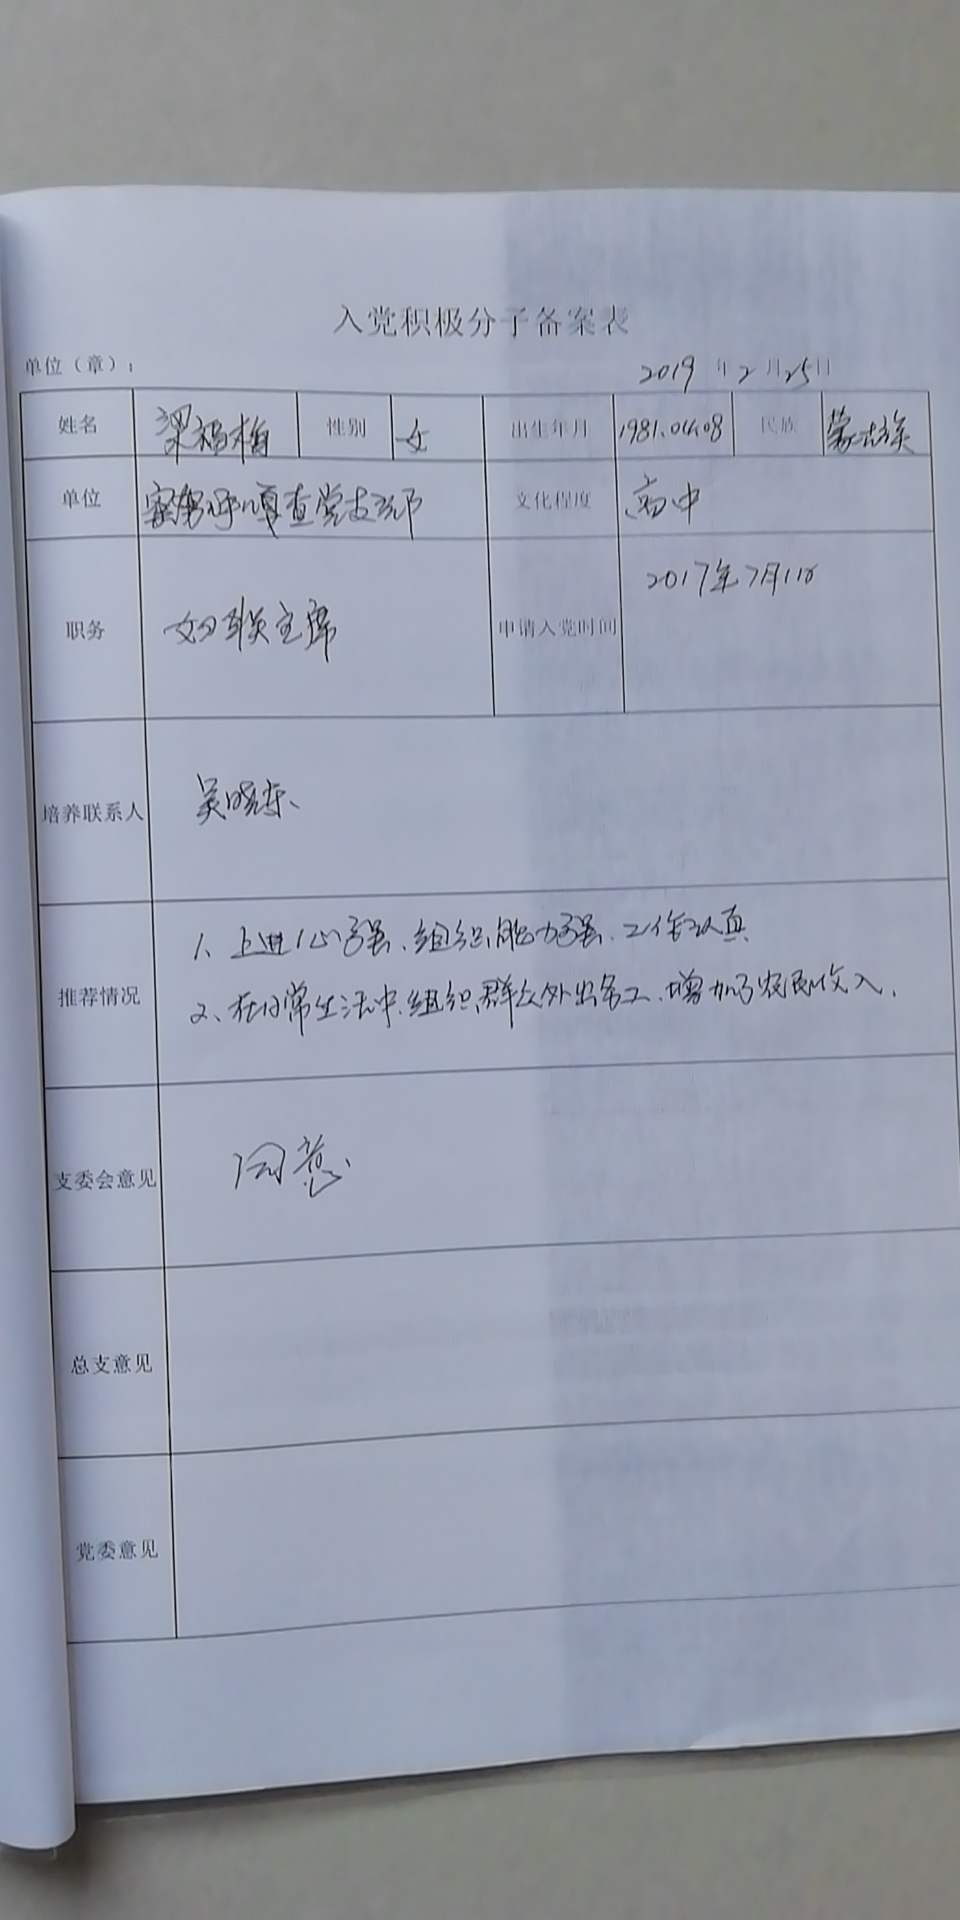 入党积极分子备案表
单位（章）： 2019年2月25日
姓名 梁福梅 性别 女 出生年月 1981.04.08 民族 蒙古族
单位 嘎查党支部 文化程度 高中
职务 妇联主席 申请入党时间 2017年7月11日
培养联系人 吴晓东
推荐情况
1、上进心强、组织能力强、工作认真
2、在日常生活中、组织群众外出务工、增加了农民收入、
支委会意见 同意
总支意见
党委意见